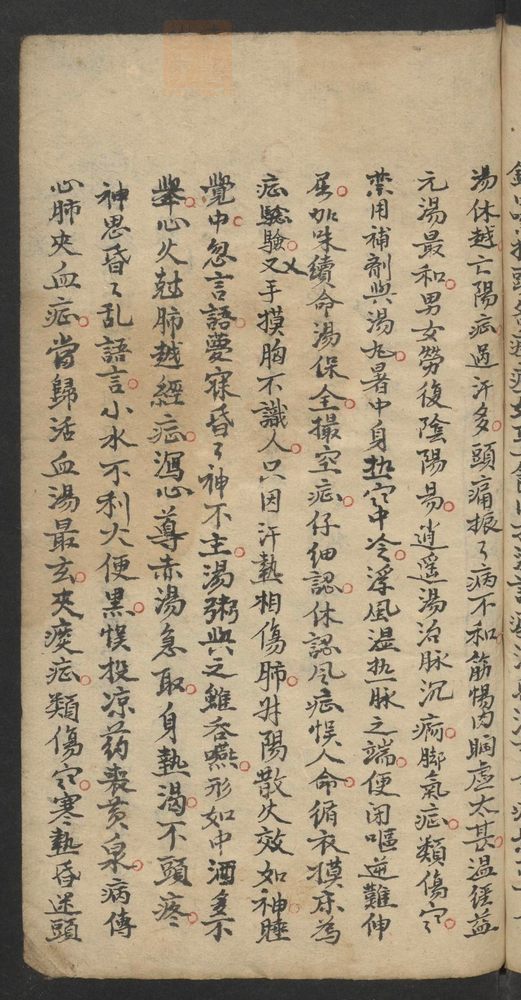 湯休越亡陽症過汗多頭痛振々病不和筋惕肉瞤虛太甚溫經益
元湯最和男女勞復陰陽昜逍遥湯治脉沉痾脚氣症類傷寒
禁用補劑與湯丸暑中身热寒中冷浮風温热脉之端便闭嘔逆難伸
屈加味續命湯保全撮空症仔細認休認风症悮人命循衣摸床為
症驗驗叉手摸胸不識人只因汗熱相傷肺升陽散火效如神睡
覺中忽言語夢寐昏々神不主湯粥與之雖吞嚥形如中酒多不
舉心火尅肺越經症瀉心導赤湯急取身熱渴不頭疼
神思昏々乱語言小水不利大便黒悮投凉药喪黄泉病傳
心肺夾血症當歸活血湯最玄夾痰症類傷寒寒熱昏迷頭